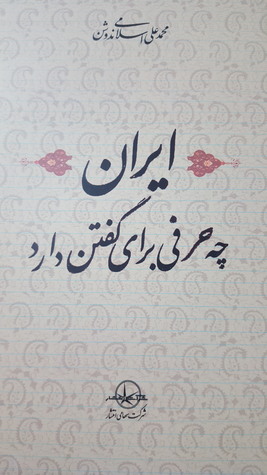 محمدعلی اسلامی ندوشن
ایران
چه حرفی برای گفتن دارد
شرکت سهامی انتشار